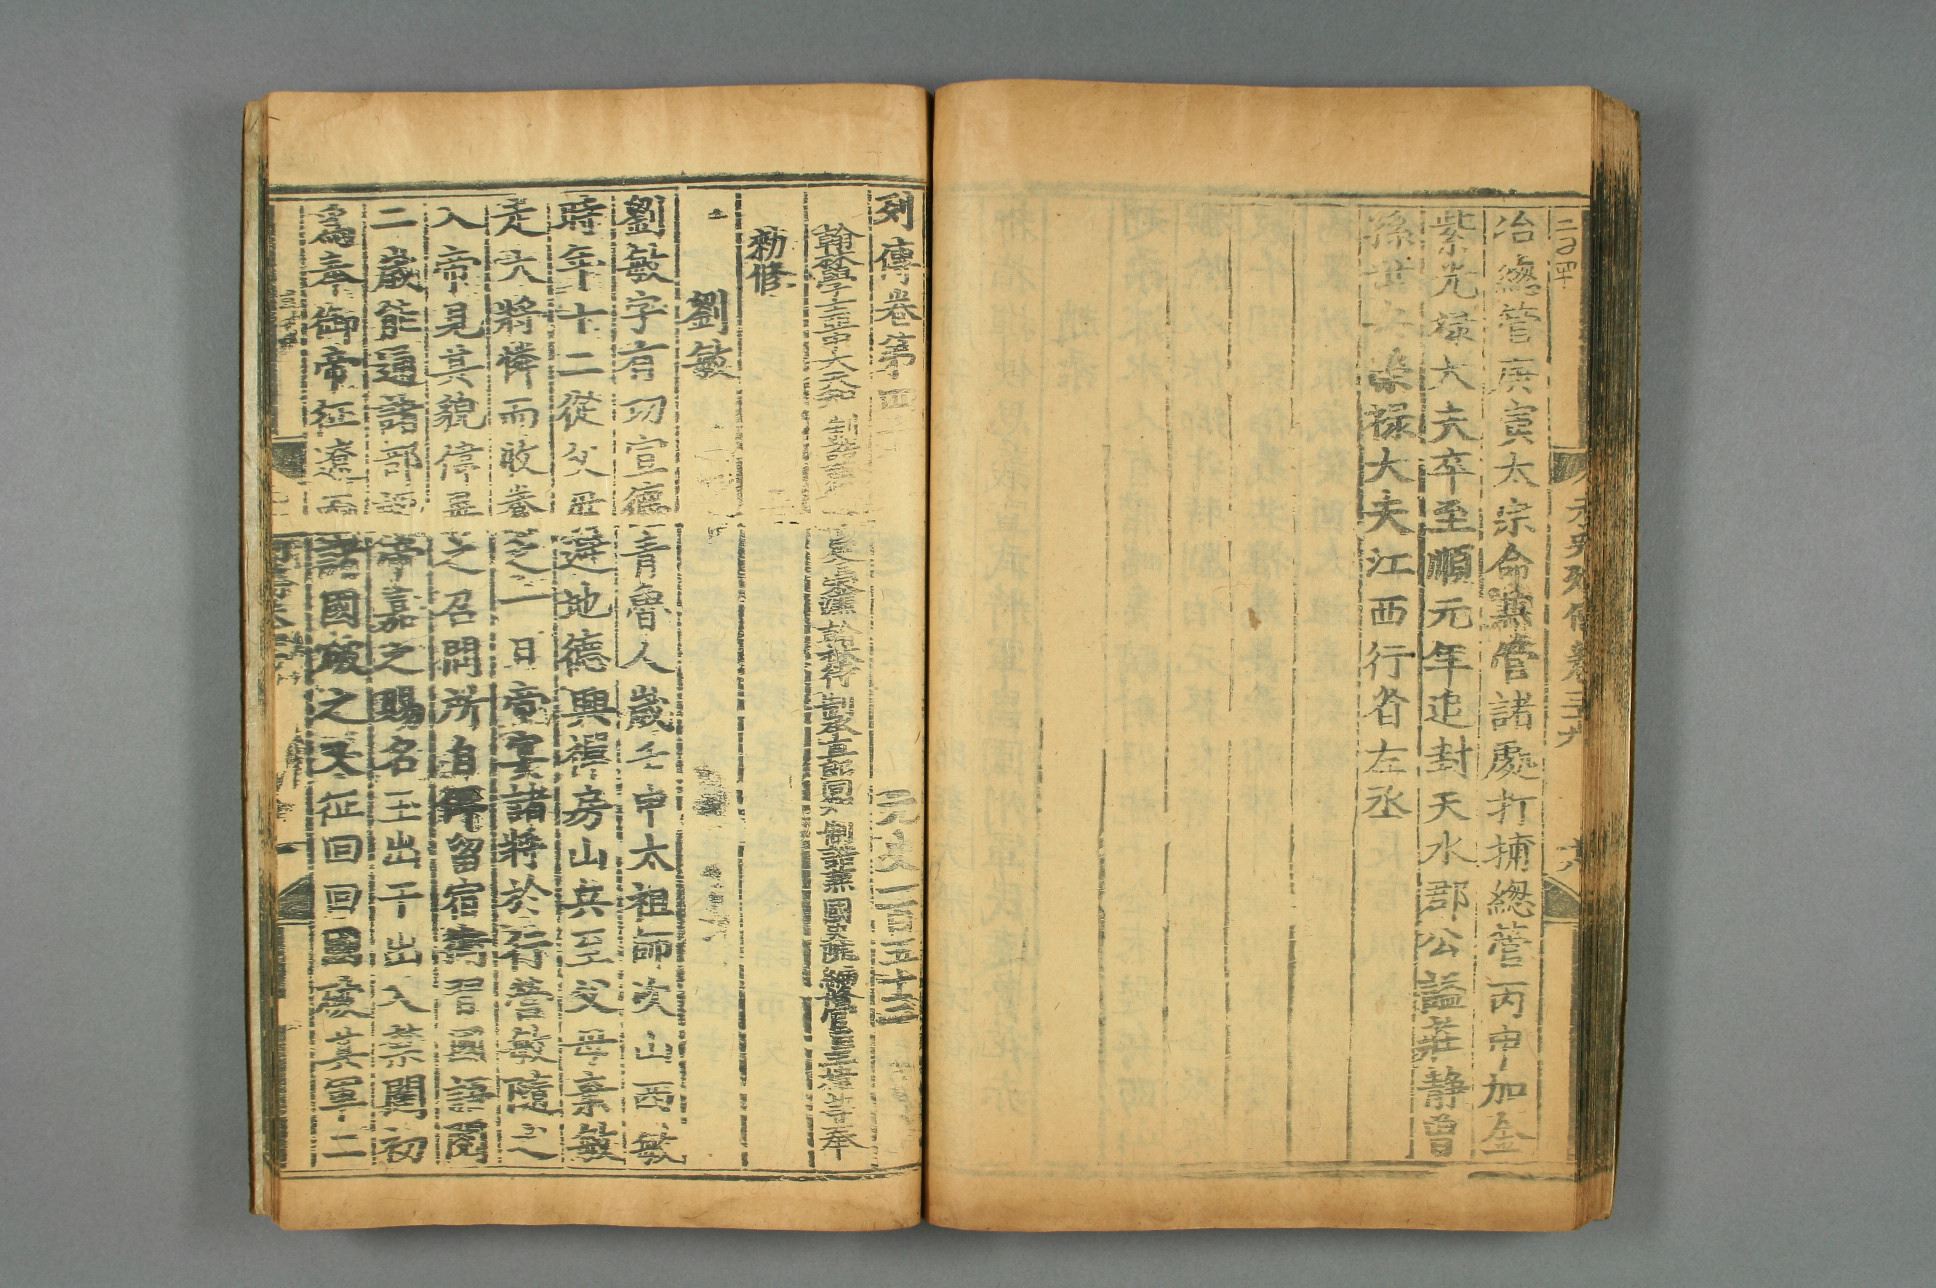 元史列傳卷三十九
十八
冶緫管庚寅太宗命兼管諸處打捕緫管丙申加金
紫光祿大夫卒至順元年追封天水郡公謚莊靜曾
孫 榮祿大夫江西行省左丞
列傳卷第四十 元史一百五十三
翰林學士亞中大夫知制誥兼 國史臣宋濂翰林待制承直郎同知制誥兼國史院編修官臣王禕等奉
勑修
劉敏
劉敏字有功宣德青魯人歲壬申太祖師次山西敏
時年十二從父母避地德興禪房山兵至父母棄敏
走大將憐而收養之一日帝宴諸將於行營敏隨之
入帝見其貌偉異之召問所自俾留宿衛習國語閱
二歲能通諸部語帝嘉之賜名玉出干出入禁闥初
爲奉御帝征遼西諸國破之又征回回國破其軍二